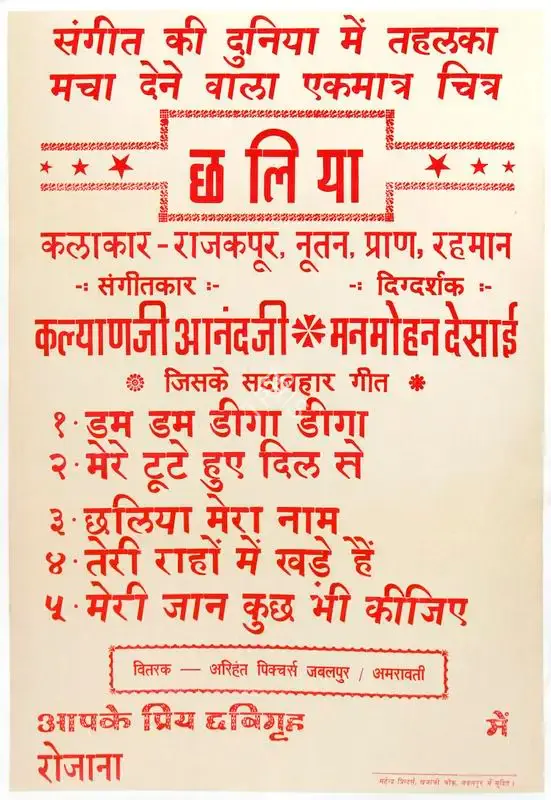 संगीत की दुनिया में तहलका
मचा देने वाला एकमात्र चित्र
छलिया
कलाकार - राजकपूर, नूतन, प्राण, रहमान
-: संगीतकार :- -: दिग्दर्शक :-
कल्याणजी आनंदजी मनमोहन देसाई
जिसके सदाबहार गीत
१. डम डम डीगा डीगा
२. मेरे टूटे हुए दिल से
३. छलिया मेरा नाम
४. तेरी राहों में खड़े हैं
५. मेरी जान कुछ भी कीजिए
वितरक — अरिहंत पिक्चर्स जबलपुर / अमरावती
आपके प्रिय छविगृह में
रोजाना
महेन्द्र प्रिन्टर्स, चौक, जबलपुर में मुद्रित।